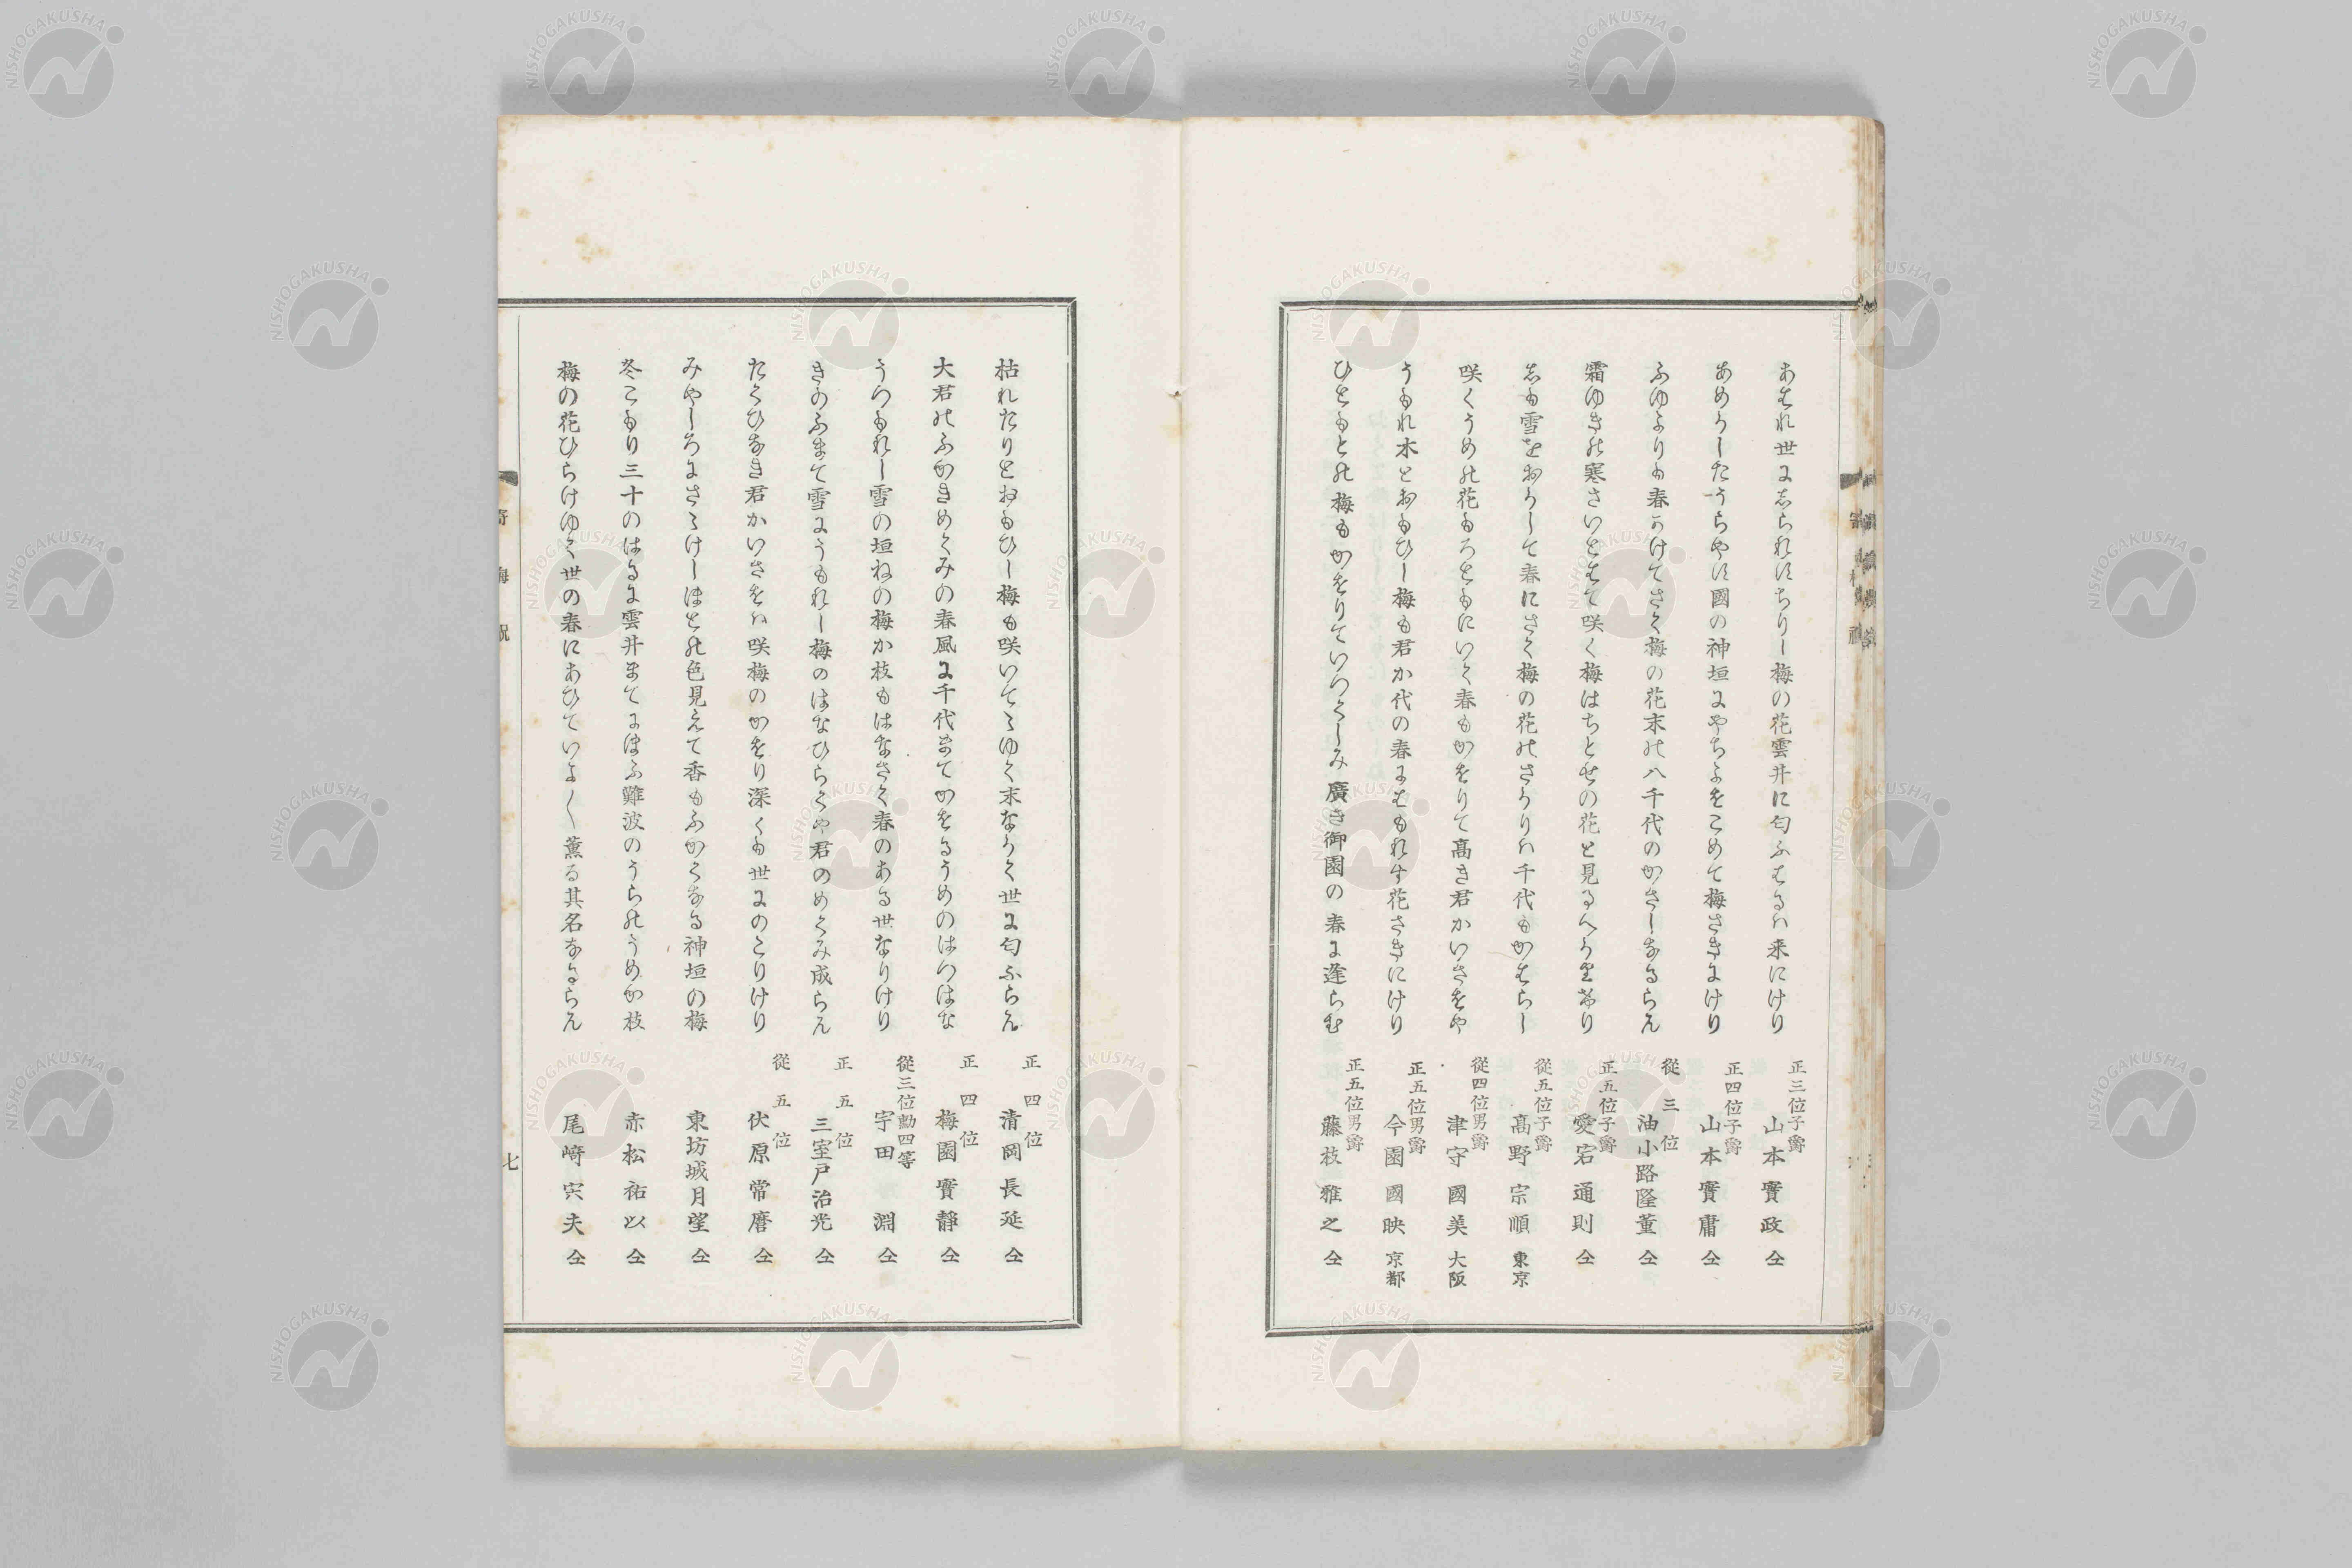 あはれ世にしられすちりし梅の花雲井に匂ふはるハ来にけり
正三位子爵 山本實政 仝
あめかしたうらやす國の神垣にやちよをこめて梅さきにけり
正四位子爵 山本實庸 仝
ふゆよりも春かけてさく梅の花末の八千代のかさしなるらん
從三位 油小路隆董 仝
霜ゆきの寒さいとはて咲く梅はちとせの花と見るへかりけり
正五位子爵 愛宕通則 仝
しも雪をおかして春にさく梅の花のさかりハ千代もかはらし
從五位子爵 髙野宗順 東京
咲くうめの花もろともにいく春もかをりて髙き君かいさをや
從四位男爵 津守國美 大阪
うもれ木とおもひし梅も君か代の春にはもれす花さきにけり
正五位男爵 今園國映 京都
ひともとの梅もかをりていつくしみ廣き御園の春に逢らむ
正五位男爵 藤枝雅之 仝
枯れたりとおもひし梅も咲いてゝゆく末なかく世に匂ふらん
正四位 清岡長延 仝
大君のふかきめくみの春風に千代まてかをるうめのはつはな
正四位 梅園實靜 仝
うつもれし雪の垣ねの梅か枝もはなさく春のある世なりけり
從三位勳四等 宇田淵 仝
きのふまて雪にうもれし梅のはなひらくや君のめくみ成らん
正五位 三室戸治光 仝
たくひなき君かいさをハ咲梅のかをり深くも世にのこりけり
從五位 伏原常麿 仝
みやしろにさゝけしほとの色見えて香もふかくなる神垣の梅
東坊城月望 仝
冬こもり三十のはるに雲井まてにほふ難波のうらのうめか枝
赤松祐以 仝
梅の花ひらけゆく世の春にあひていよ〱薫る其名なるらん
尾﨑宍夫 仝
寄梅祝
七